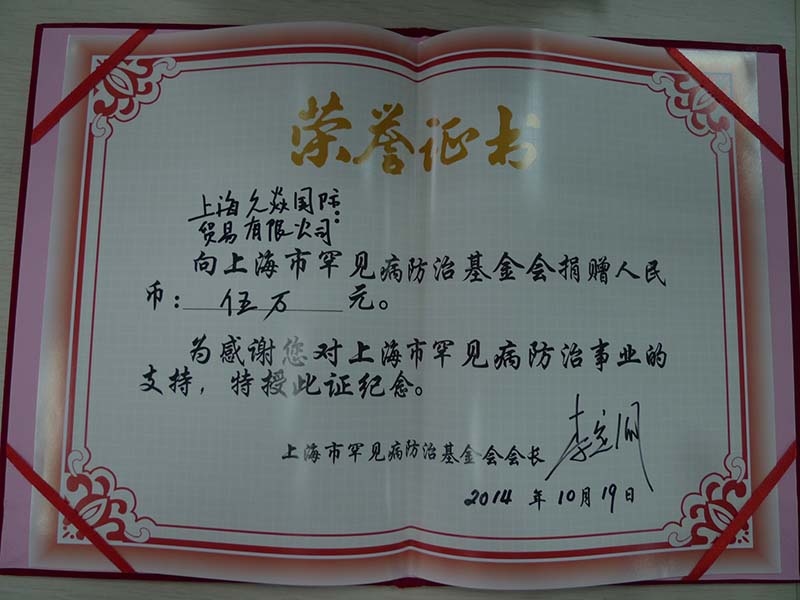 荣誉证书
上海久焱国际
贸易有限公司:
向上海市罕见病防治基金会捐赠人民
币：伍万元。
为感谢您对上海市罕见病防治事业的
支持，特授此证纪念。
上海市罕见病防治基金会会长 李定国
2014 年 10 月 19 日